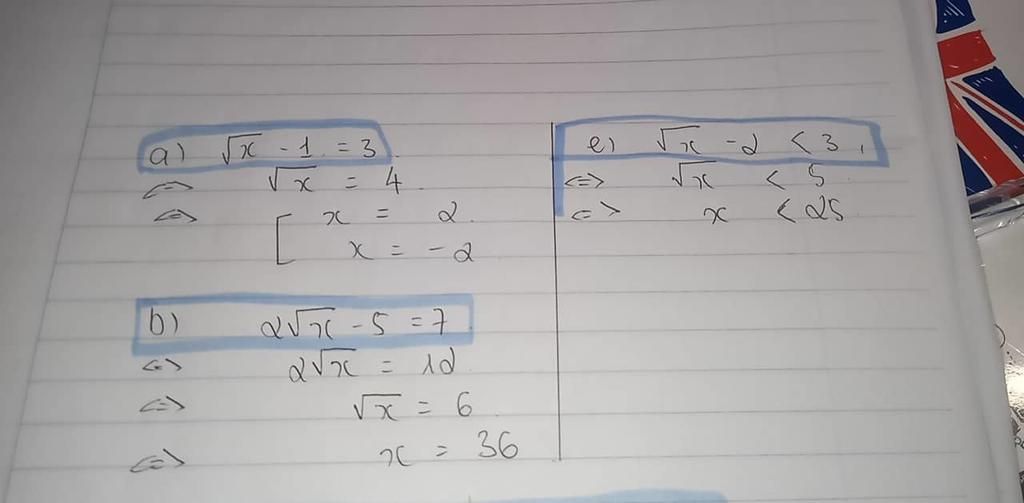 a) √x - 1 = 3
<=> √x = 4
<=> [ x = 2
x = -2
b) 2√x - 5 = 7
<=> 2√x = 12
<=> √x = 6
<=> x = 36
e) √x - 2 < 3,
<=> √x < 5
<=> x < 25